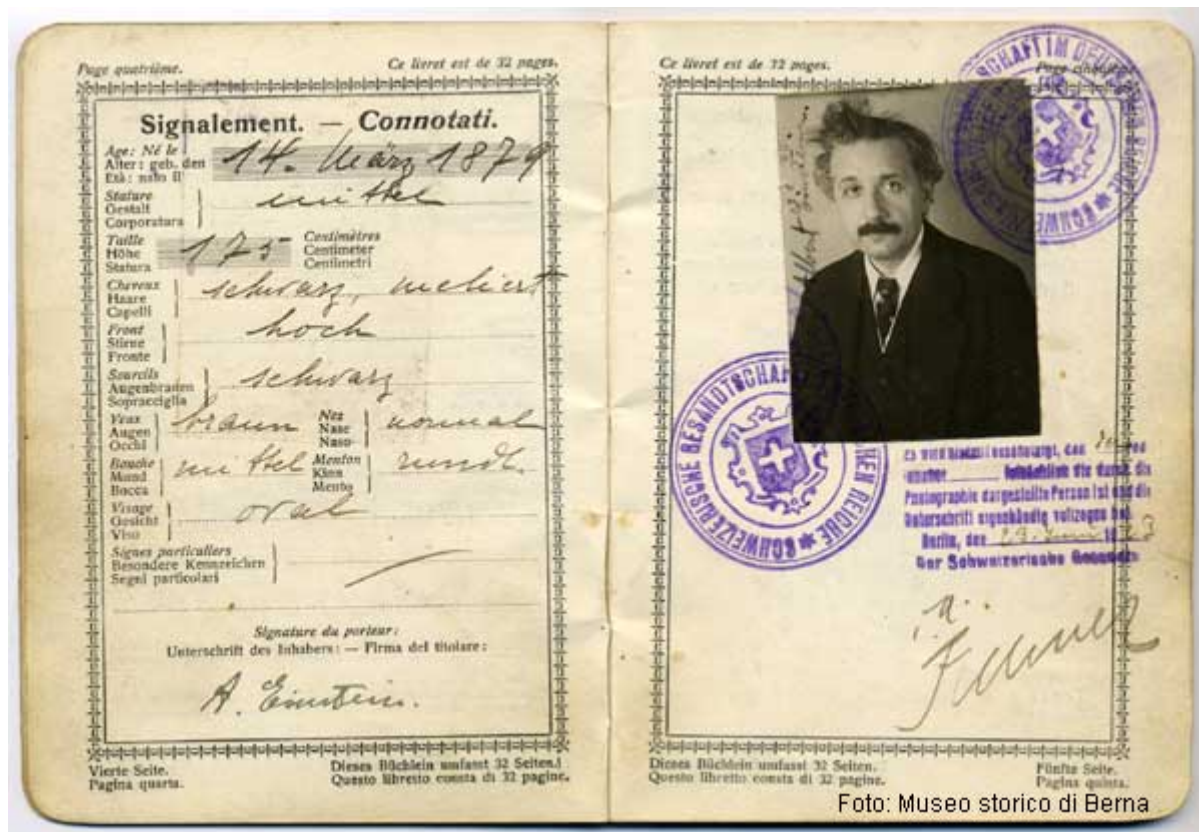 Page quatrième. Ce livret est de 32 pages.
Signalement. — Connotati.
Age: Né le
Alter: geb. den
Età: nato il
14. März 1879
Stature
Gestalt
Corporatura
mittel
Taille
Höhe
Statura
175
Centimètres
Centimeter
Centimetri
Cheveux
Haare
Capelli
schwarz, meliert
Front
Stirne
Fronte
hoch
Sourcils
Augenbrauen
Sopracciglia
schwarz
Yeux
Augen
Occhi
braun
Nez
Nase
Naso
normal
Bouche
Mund
Bocca
mittel
Menton
Kinn
Mento
rundl.
Visage
Gesicht
Viso
oval
Signes particuliers
Besondere Kennzeichen
Segni particolari
Signature du porteur:
Unterschrift des Inhabers: — Firma del titolare:
A. Einstein.
Vierte Seite. Dieses Büchlein umfasst 32 Seiten.
Pagina quarta. Questo libretto consta di 32 pagine.
Ce livret est de 32 pages. Page
SCHAFT IM DEU
SCHWEIZ
Albert
SCHWEIZERISCHE GESANDTSCHAF
HEN REICHE
die durch die
Photographie dargestellte Person ist und die
Unterschrift eigenhändig vollzogen hat.
Berlin, den 23. Juni 19 3
Der Schweizerische Gesandte
i.A.
Dieses Büchlein umfasst 32 Seiten. Fünfte Seite.
Questo libretto consta di 32 pagine. Pagina quinta.
Foto: Museo storico di Berna